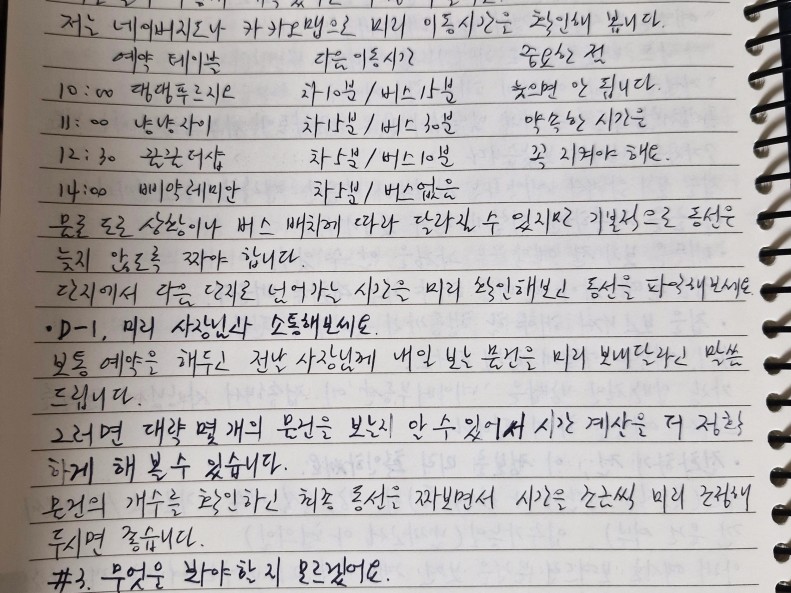 저는 네이버지도나 카카오맵으로 미리 이동시간을 확인해 봅니다.
예약 테이블 다음 이동시간 중요한 점
10:00 댕댕푸르지오 차10분/버스15분 늦으면 안 됩니다.
11:00 냥냥자이 차15분/버스30분 약속한 시간을
12:30 꿀꿀더샵 차5분/버스10분 꼭 지켜야 해요.
14:00 삐약래미안 차5분/버스없음
물론 도로 상황이나 버스 배차에 따라 달라질 수 있지만 기본적으로 동선은
늦지 않도록 짜야 합니다.
단지에서 다음 단지로 넘어가는 시간을 미리 확인해보고 동선을 파악해보세요.
•D-1, 미리 사장님과 소통해보세요.
보통 예약을 해두고 전날 사장님께 내일 보는 물건을 미리 보내달라고 말씀
드립니다.
그러면 대략 몇 개의 물건을 보는지 알 수 있어서 시간 계산을 더 정확
하게 해 볼 수 있습니다.
물건의 개수를 확인하고 최종 동선을 짜보면서 시간을 조금씩 미리 조정해
두시면 좋습니다.
#3. 무엇을 봐야할지 모르겠어요.